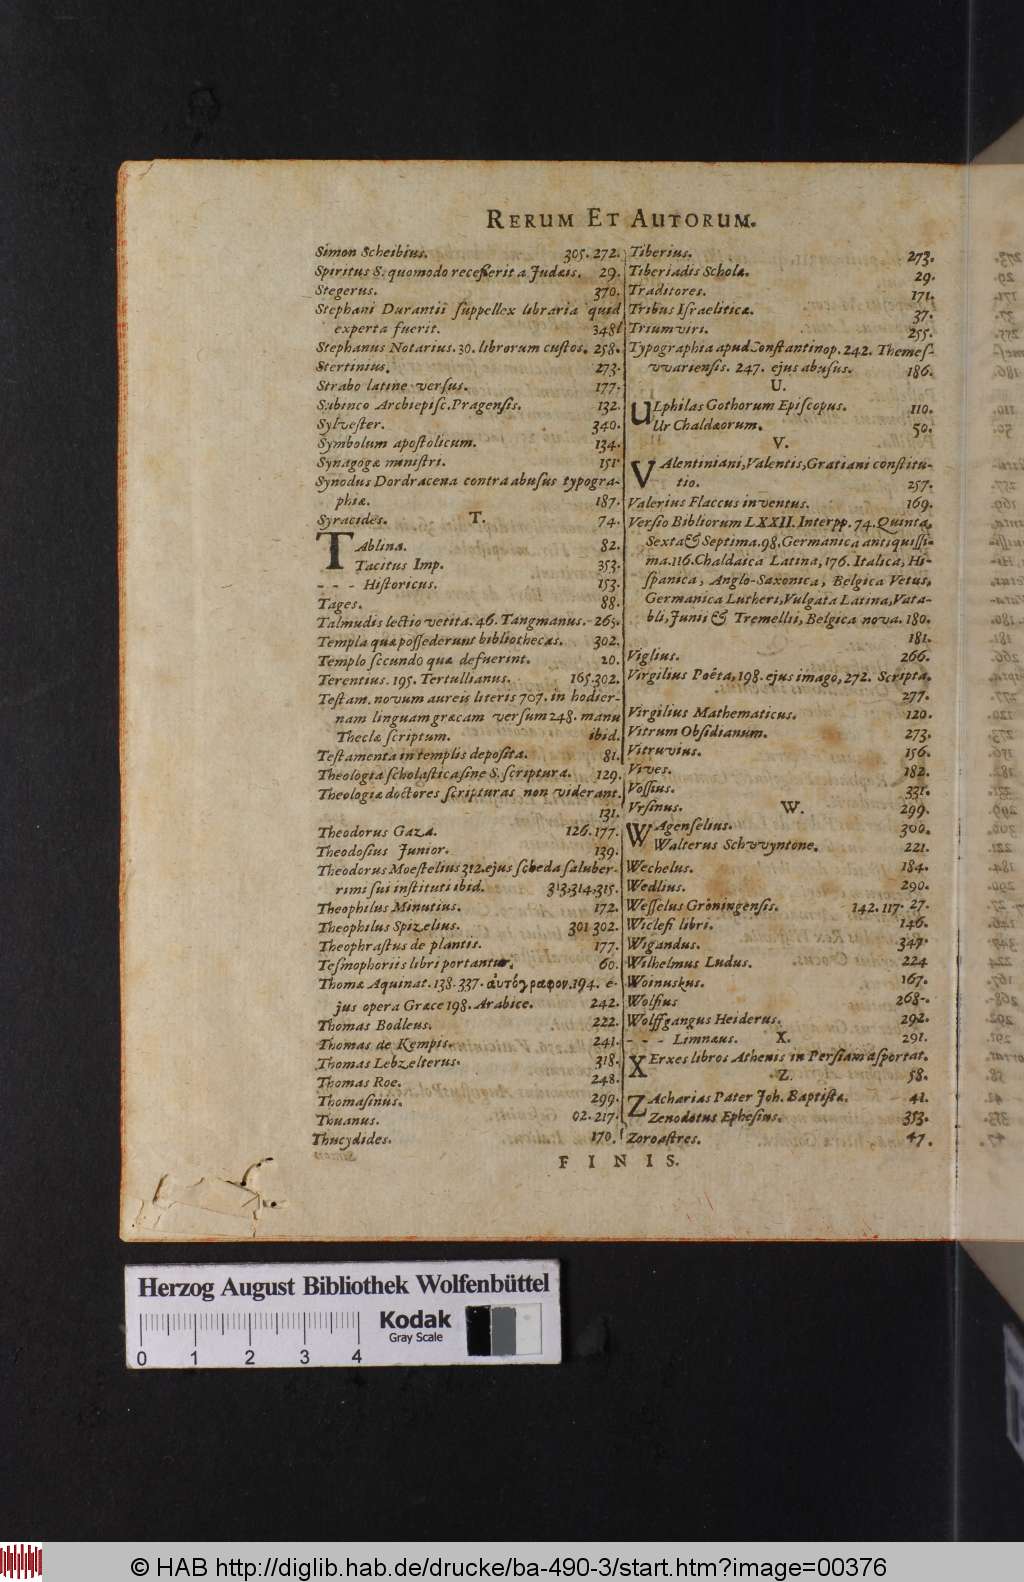 RERUM ET AUTORUM.
Simon Scheibius. 305. 272.
Spiritus S. quomodo receſſerit a Judæis. 29.
Stegerus. 370.
Stephani Durantii ſuppellex libraria quid
experta fuerit. 348
Stephanus Notarius. 30. librorum cuſtos. 258.
Stertinius. 273.
Strabo latine verſus. 177.
Subinco Archiepiſc. Pragenſis. 132.
Sylveſter. 340.
Symbolum apoſtolicum. 134.
Synagogæ miniſtri. 151.
Synodus Dordracena contra abuſus typogra-
phiæ. 187.
Syracides. 74.
T.
TAblinæ. 82.
Tacitus Imp. 353.
- - - Hiſtoricus. 153.
Tages. 88.
Talmudis lectio vetita. 46. Tangmanus. 265.
Templa quæ poſſederunt bibliothecas. 302.
Templo ſecundo quæ defuerint. 20.
Terentius. 195. Tertullianus. 165. 302.
Teſtam. novum aureis literis 707. in hodier-
nam linguam græcam verſum 248. manu
Theclæ ſcriptum. ibid.
Teſtamenta in templis depoſita. 81.
Theologia ſcholaſtica ſine S. ſcriptura. 129.
Theologiæ doctores ſcripturas non viderant.
131.
Theodorus Gaza. 126. 177.
Theodoſius Junior. 139.
Theodorus Moeſtelius 312. ejus ſcheda ſaluber-
rimi ſui inſtituti ibid. 313. 314. 315.
Theophilus Minutius. 172.
Theophilus Spizelius. 301 302.
Theophraſtus de plantis. 177.
Teſmophoriis libri portantur. 60.
Thomæ Aquinat. 138. 337. αὐτόγραφον. 194. e-
jus opera Græce 198. Arabice. 242.
Thomas Bodleus. 222.
Thomas de Kempis. 241.
Thomas Lebzelterus. 318.
Thomas Roe. 248.
Thomaſinus. 299.
Thuanus. 02. 217.
Thucydides. 170.
Tiberius. 273.
Tiberiadis Schola. 29.
Traditores. 171.
Tribus Iſraeliticæ. 37.
Triumviri. 255.
Typographia apud Conſtantinop. 242. Themeſ-
vvarienſis. 247. ejus abuſus. 186.
U.
ULphilas Gothorum Epiſcopus. 110.
Ur Chaldæorum. 50.
V.
VAlentiniani, Valentis, Gratiani conſtitu-
tio. 257.
Valerius Flaccus inventus. 169.
Verſio Bibliorum LXXII. Interpp. 74. Quinta,
Sexta & Septima. 98. Germanica antiquiſſi-
ma. 116. Chaldaica Latina, 176. Italica, Hi-
ſpanica, Anglo-Saxonica, Belgica Vetus,
Germanica Lutheri, Vulgata Latina, Vata-
bli, Junii & Tremellii, Belgica nova. 180.
181.
Viglius. 266.
Virgilius Poëta, 198. ejus imago, 272. Scripta,
277.
Virgilius Mathematicus. 120.
Vitrum Obſidianum. 273.
Vitruvius. 156.
Vives. 182.
Voſſius. 331.
Vrſinus. 299.
W.
WAgenſelius. 300.
Walterus Schvvyntone. 221.
Wechelus. 184.
Wedlius. 290.
Weſſelus Gröningenſis. 142. 117. 27.
Wiclefi libri. 146.
Wigandus. 347.
Wilhelmus Ludus. 224
Woinuskus. 167.
Wolfius 268-.
Wolffgangus Heiderus. 292.
- - - Limnæus. 291.
X.
XErxes libros Athenis in Perſiam aſportat.
58.
Z.
ZAcharias Pater Joh. Baptiſtæ. 41.
Zenodotus Epheſius. 353.
Zoroaſtres. 47.
FINIS.
Herzog August Bibliothek Wolfenbüttel
Kodak
Gray Scale
0 1 2 3 4
© HAB http://diglib.hab.de/drucke/ba-490-3/start.htm?image=00376